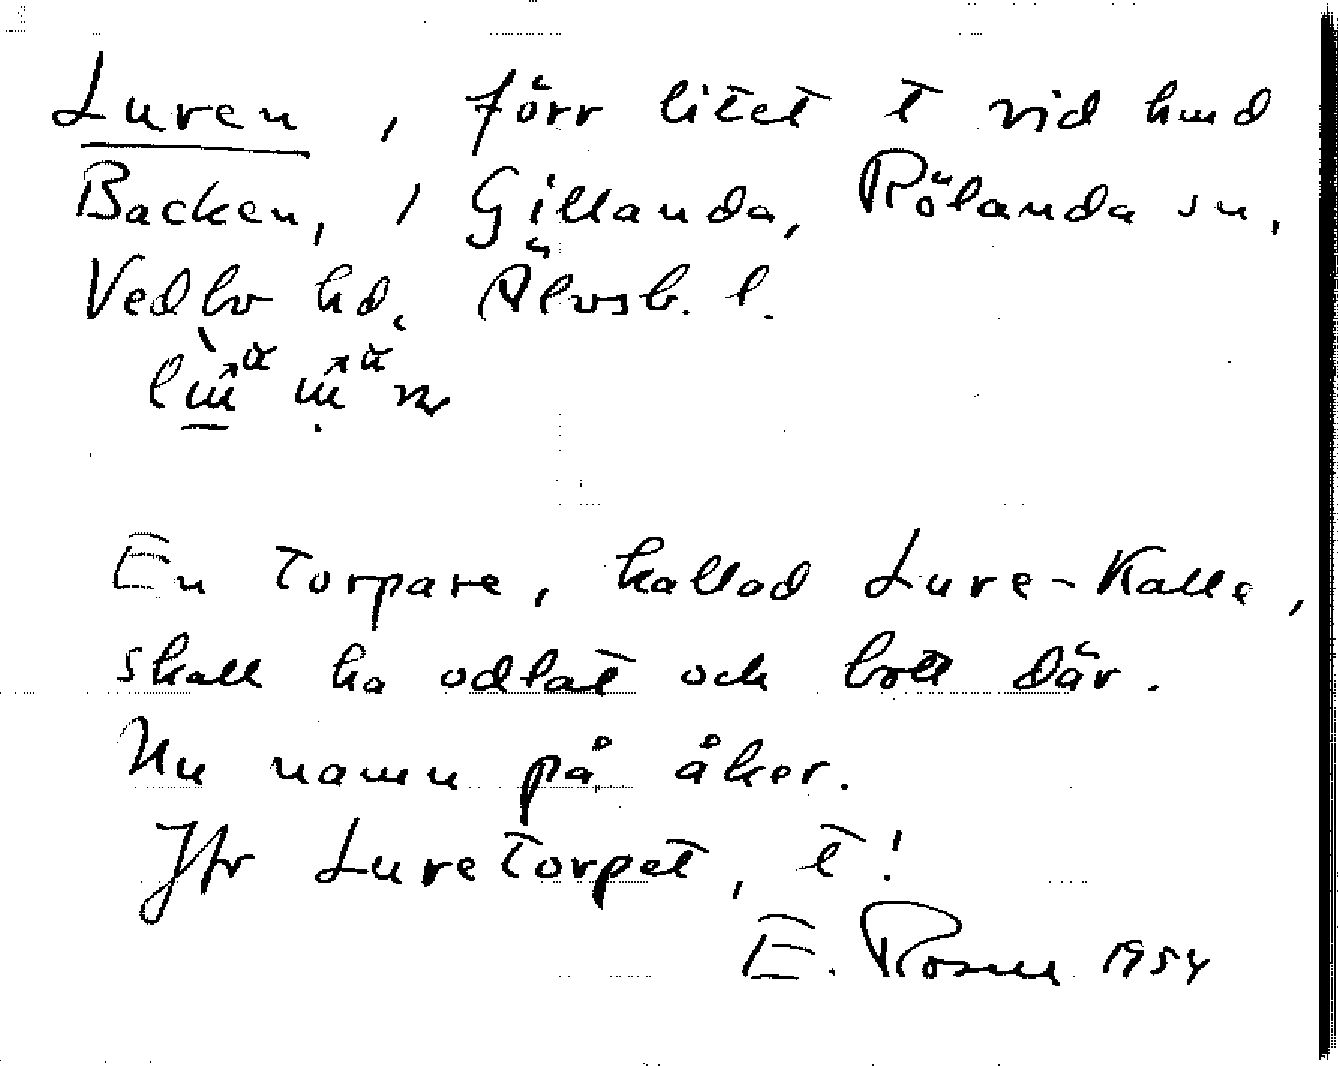 Luren, förr litet t vid hmd
Backen, i Gillanda, Rölanda sn,
Vedbo hd. Älvsb. l.
En torpare, kallad Lure-Kalle,
skall ha odlat och bott där.
Nu namn på åker.
Jfr Luretorpet, t!
E. Rosell 1954